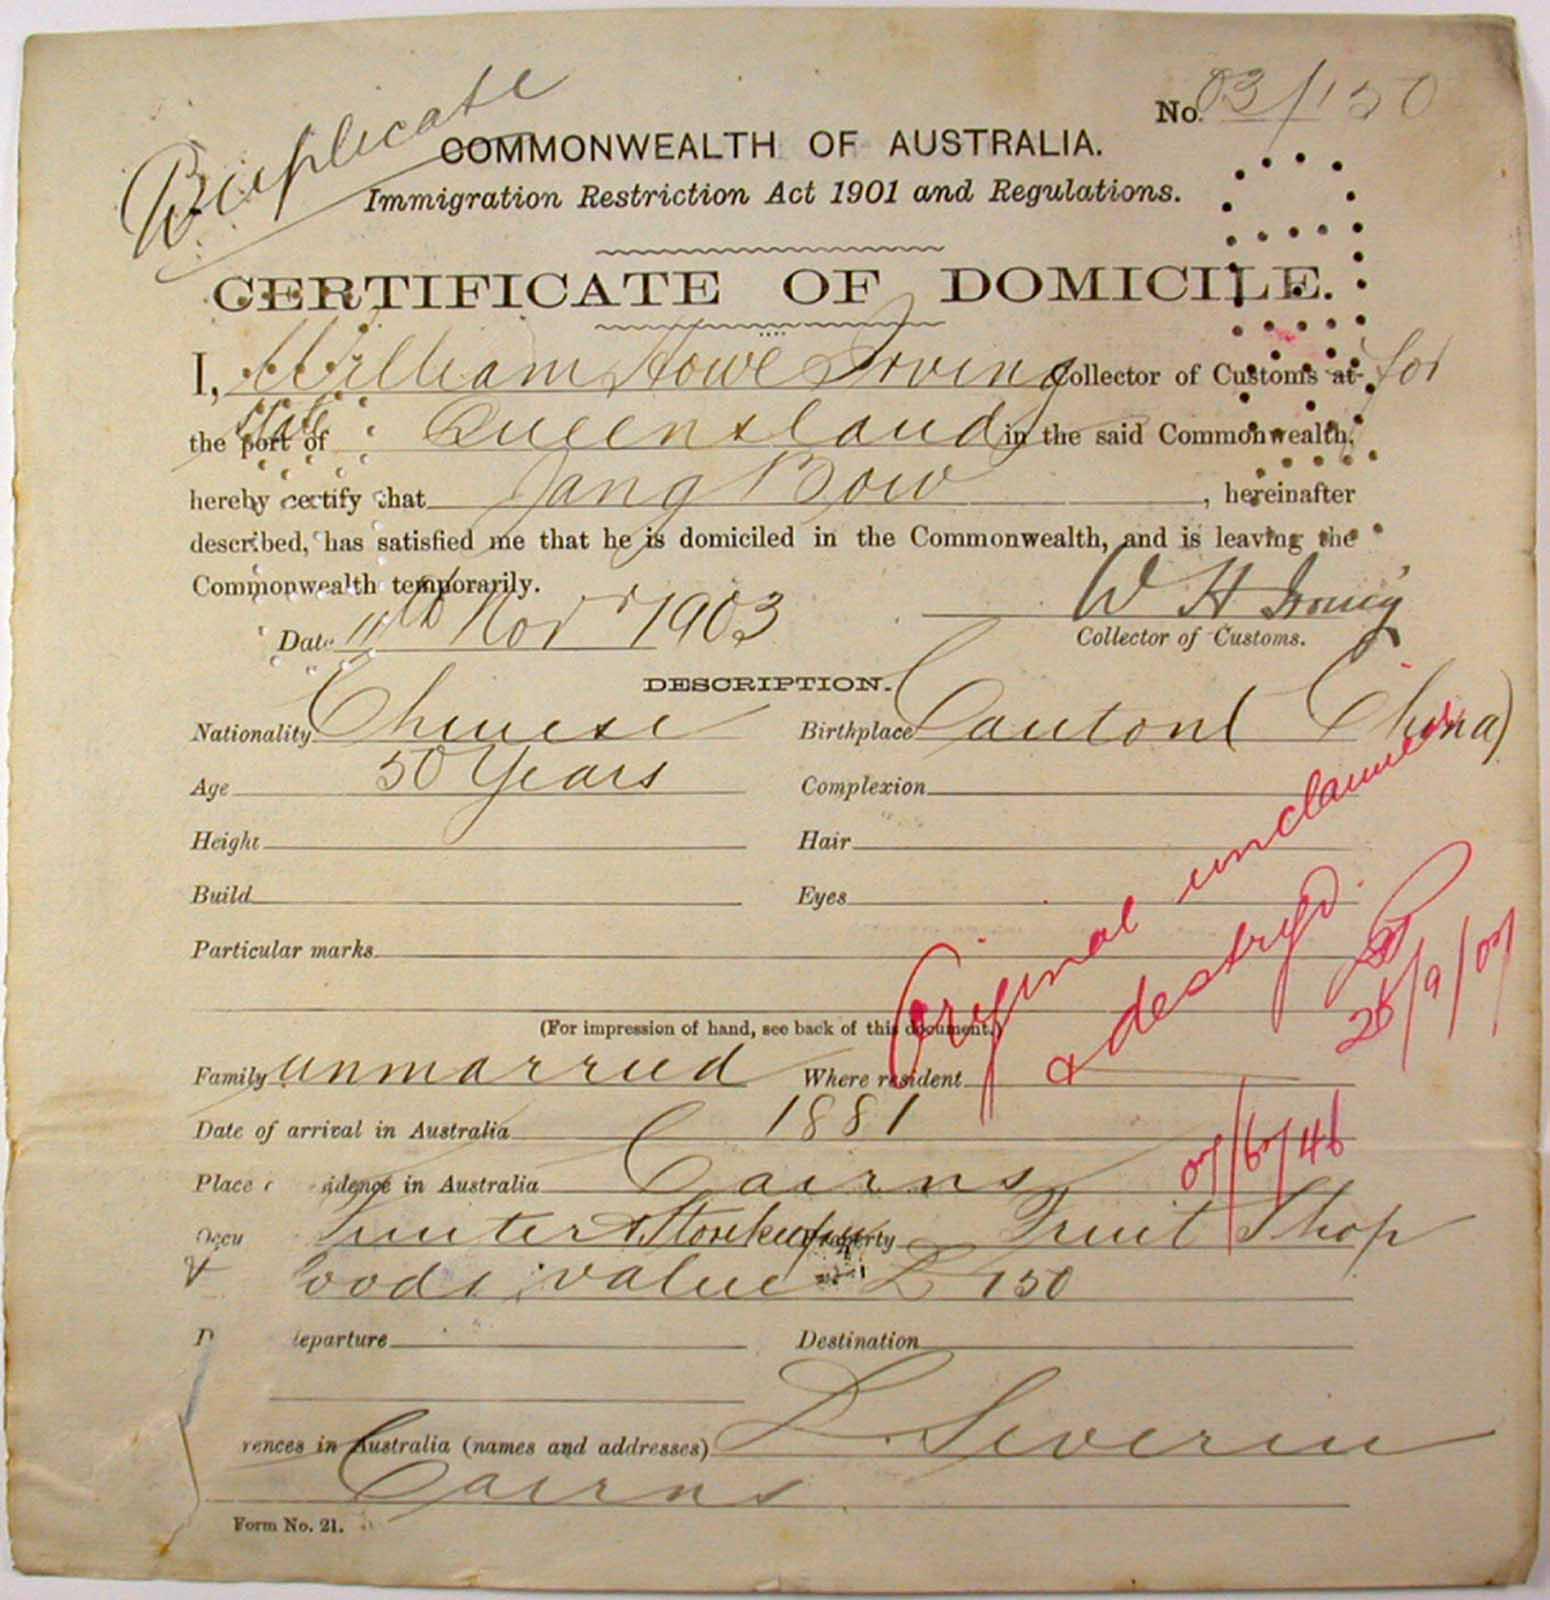 Duplicate
No. 03/150
COMMONWEALTH OF AUSTRALIA.
Immigration Restriction Act 1901 and Regulations.
CERTIFICATE OF DOMICILE.
I, William Howe Irving Collector of Customs at for
State
the port of Queensland in the said Commonwealth,
hereby certify that Jang Bow, hereinafter
described, has satisfied me that he is domiciled in the Commonwealth, and is leaving the
Commonwealth temporarily.
Date 11th Novr 1903
W H Irving
Collector of Customs.
DESCRIPTION.
Nationality Chinese Birthplace Canton (China)
Age 50 Years Complexion
Height Hair
Build Eyes
Particular marks
Original unclaimed
& destryd.
26/9/07
(For impression of hand, see back of this document.)
Family unmarried Where resident
Date of arrival in Australia 1881
07/67/46
Place idence in Australia Cairns
Occu uiter & Storekeeper Property Fruit Shop
& oods value £150
D eparture Destination
rences in Australia (names and addresses) L. Severin
Cairns
Form No. 21.